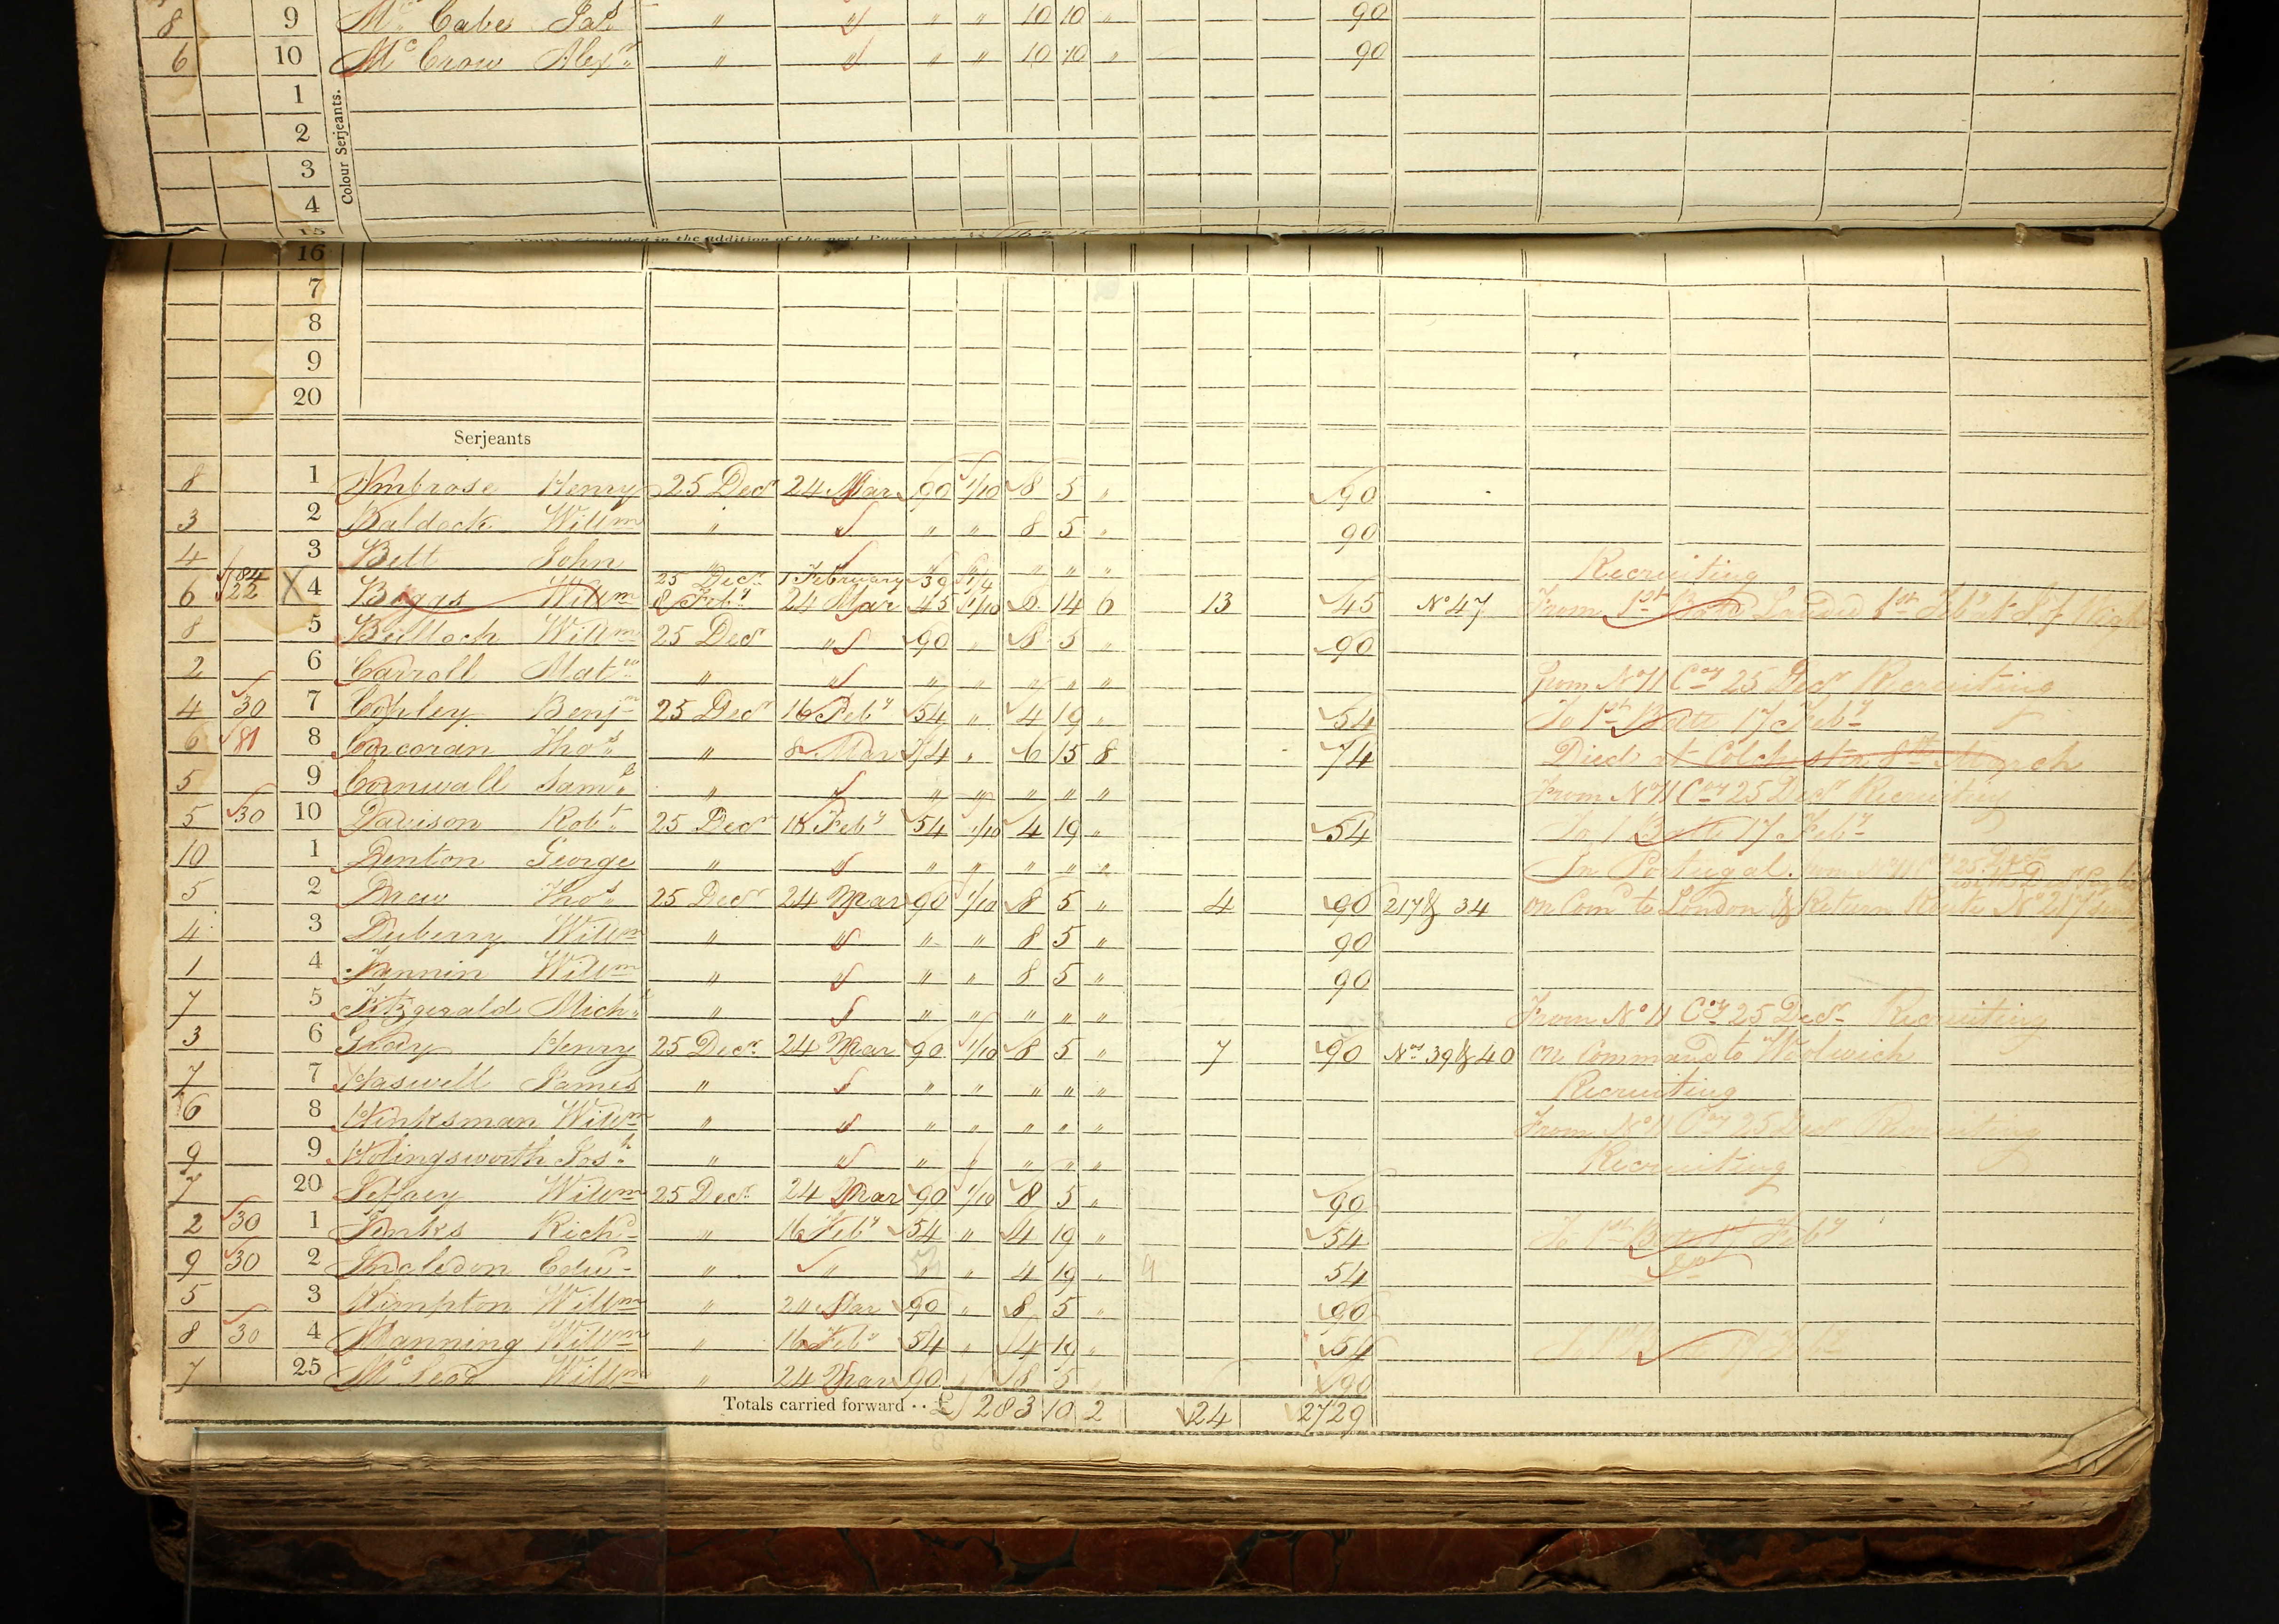 8 9 Mc Cabe Jas " " " " 10 10 " 90
6 10 Mc Crow Alexr " " " " 10 10 " 90
1
2
3
4
Colour Serjeants.
15
16
7
8
9
20
Serjeants
8 1 Ambrose Henry 25 Decr 24 Mar 90 1/10 8 5 " 90
3 2 Baldock Willm " " " " 8 5 " 90
4 3 Bell John " " " " " " Recruiting
84 25 Decr 1 February 39 1/4
6 22 X 4 Beggs Willm 8 Feby 24 Mar 45 1/10 14 6 13 45 No 47 From 1st Batt Landed 1st Feb at
8 5 Bulloch Willm 25 Decr " 90 " 8 5 " 90
2 6 Carroll Matw " " " " " " " From No 11 Coy 25 Decr Recruiting
4 30 7 Copley Benjn 25 Decr 16 Feby 54 " 4 19 " 54 To 1st Batt 17 Feby
6 81 8 Corcoran Thos " 8 Mar 74 " 6 15 8 74 Died at Colchester 8th March
5 9 Cornwall Saml " " " " " " " From No 11 Coy 25 Decr Recruiting
5 30 10 Davison Robt 25 Decr 16 Feby 54 1/10 4 19 " 54 To 1 Batt 17 Feby
10 1 Denton George " " " " " " " In Portugal. From No 11 Coy 25 Decr
5 2 Drew Thos 25 Decr 24 Mar 90 1/10 8 5 " 4 90 217 & 34 on Comd to London & Return Route No 217
4 3 Duberry Willm " " " " 8 5 " 90
1 4 Fannin Willm " " " " 8 5 " 90
7 5 Fitzgerald Michl " " " " " " " From No 11 Coy 25 Decr Recruiting
3 6 Henry 25 Decr 24 Mar 90 1/10 8 5 " 7 90 Nos 39 & 40 on Command to Woolwich
7 7 Haswell James " " " " " " " Recruiting
6 8 Hinksman Willm " " " " " " " From No 11 Coy 25 Decr Recruiting
9 9 Holingsworth Josh " " " " " " Recruiting
7 20 Willm 25 Decr 24 Mar 90 1/10 8 5 " 90
2 30 1 Jinks Richd " 16 Feby 54 " 4 19 " 54 To 1st Batt Feby
9 30 2 Incledon Edwd " " " " 4 19 " 9 54
5 3 Kimpton Willm " 24 Mar 90 " 8 5 " 90
8 30 4 Manning Willm " 16 Feby 54 " 4 19 " 54
7 25 Mc Leod Willm " 24 Mar 90 " 8 5 " 90
Totals carried forward .. £ 283 10 2 24 2729